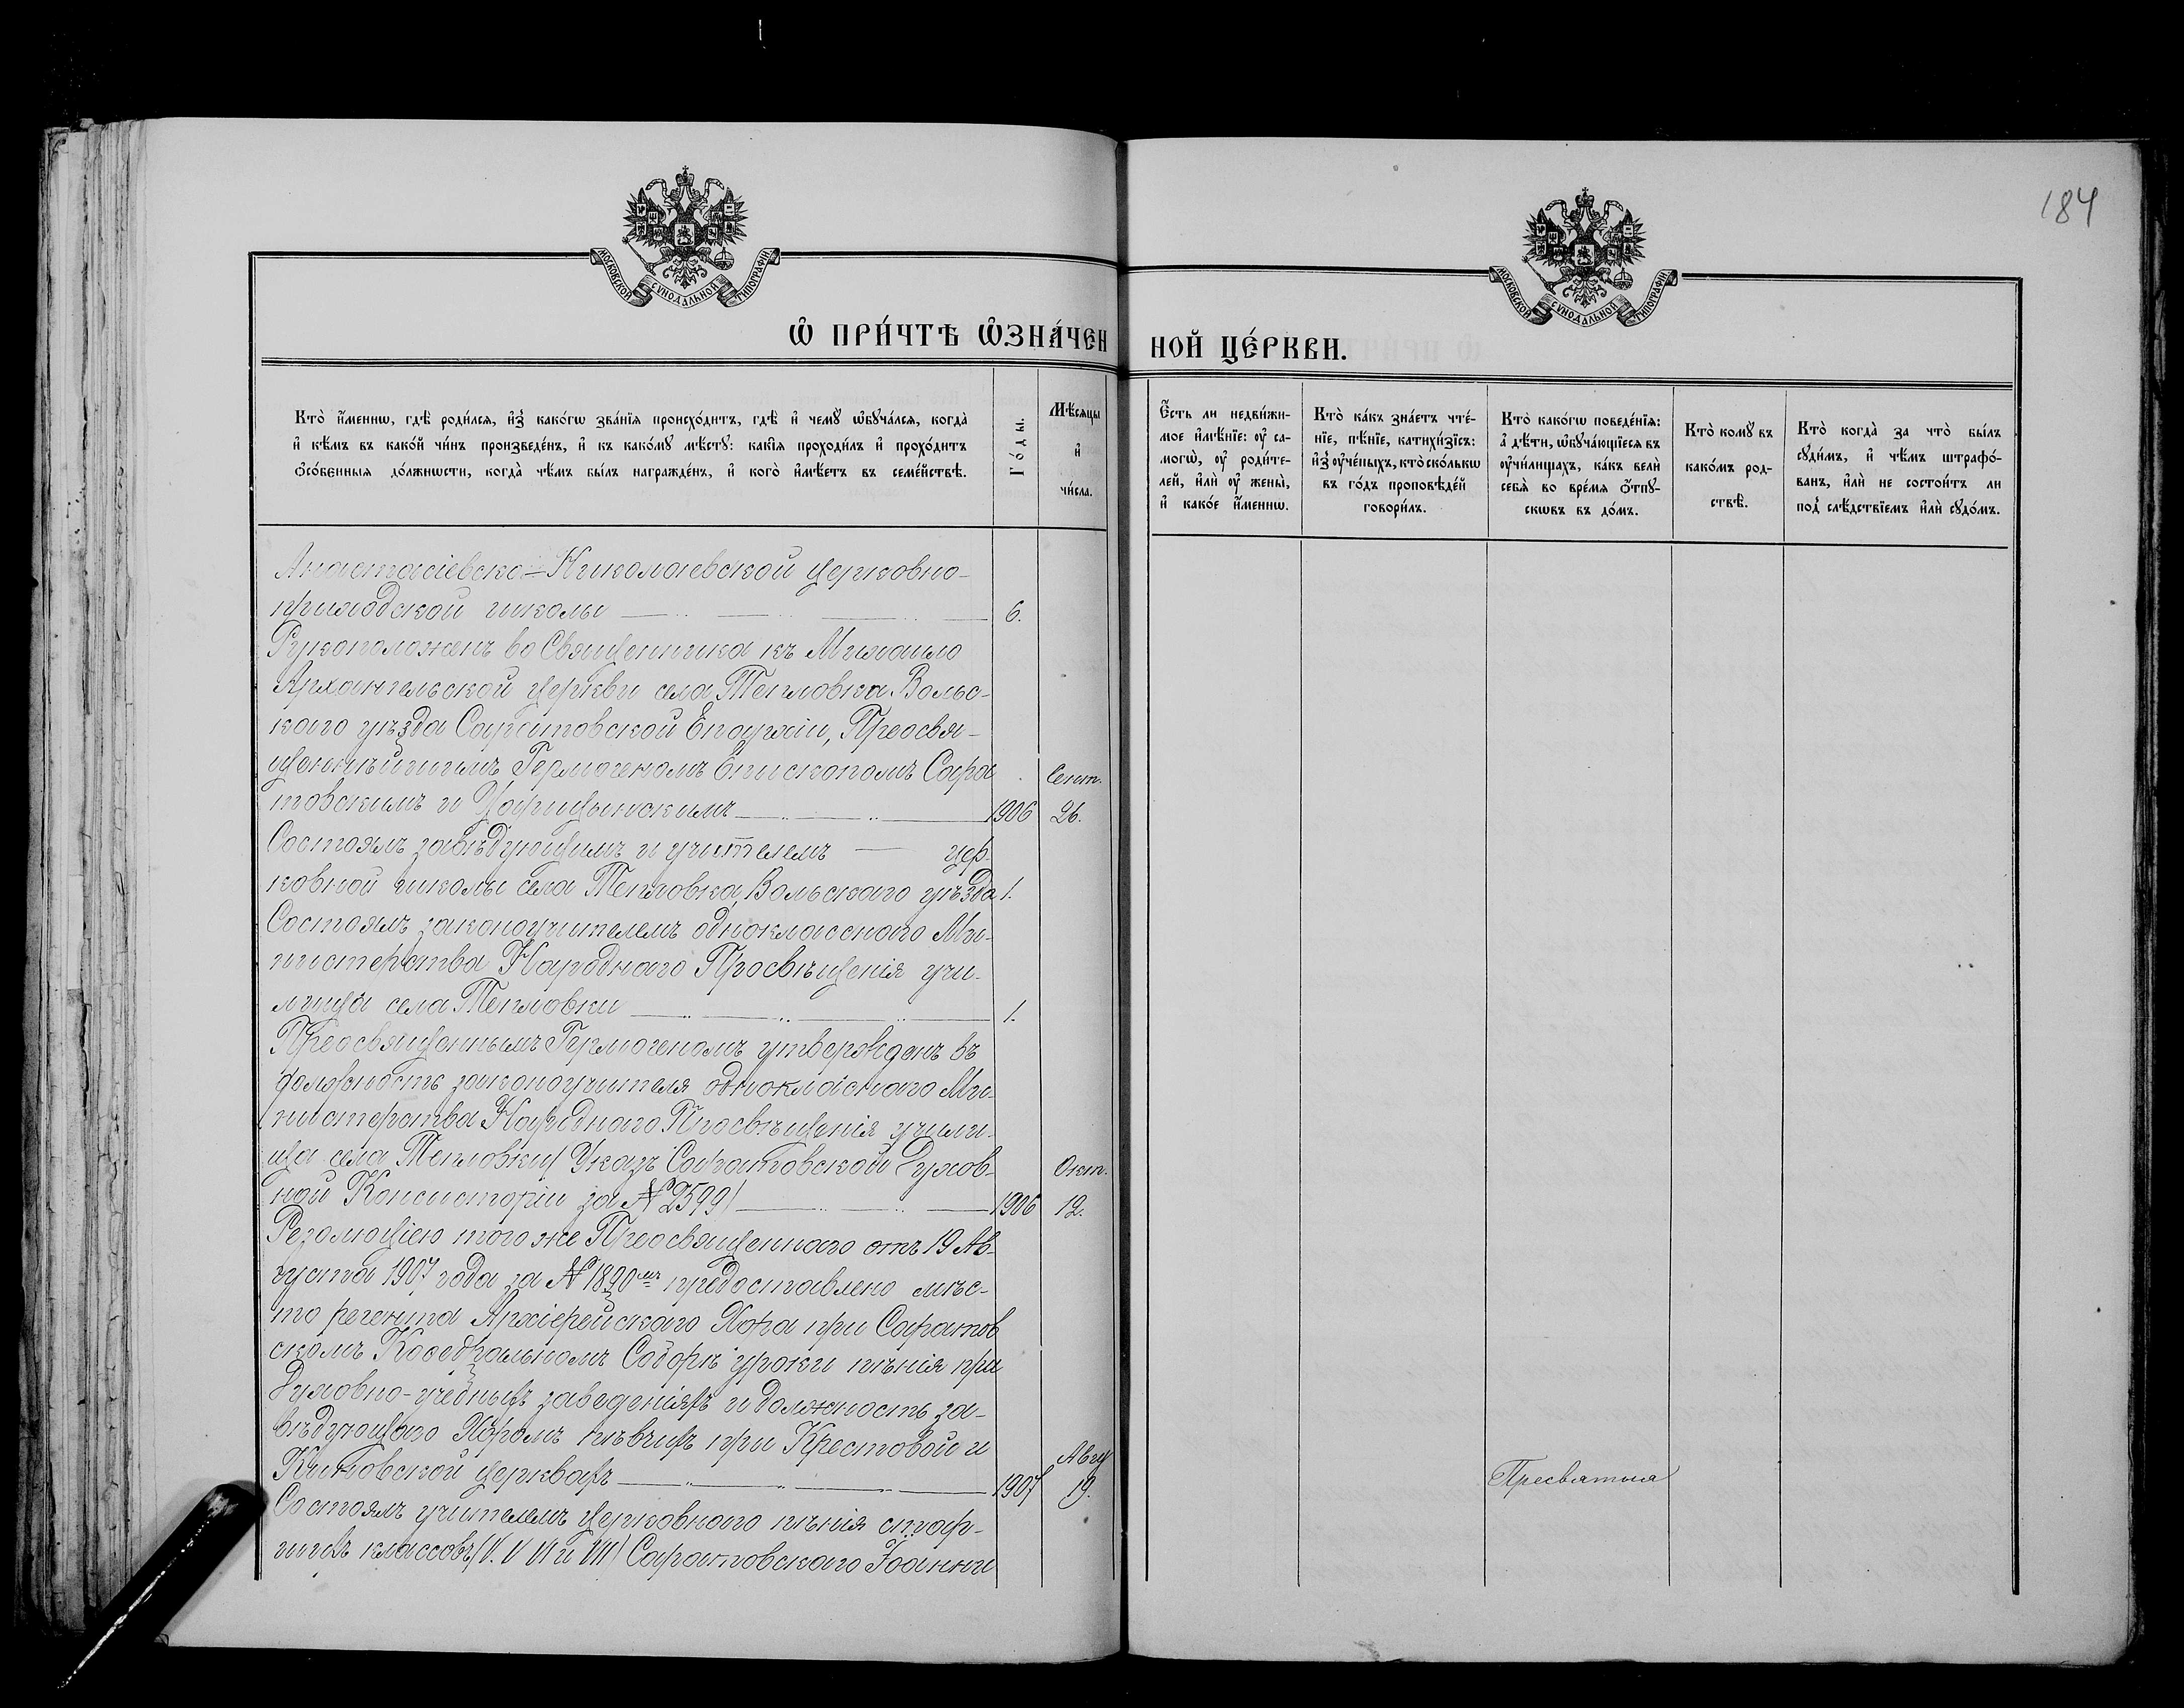 184
МОСКОВСКОЙ СѴНОДАЛЬНОЙ ТИПОГРАФІИ
МОСКОВСКОЙ СѴНОДАЛЬНОЙ ТИПОГРАФІИ
Ѡ҆ ПРИ́ЧТѢ Ѡ҆ЗНА́ЧЕН
НОЙ ЦЕ́РКВИ.
Кто̀ и҆́менѡ, гдѣ̀ роди́лся, и҆з̾ како́гѡ зва́нїѧ происхо́дитъ, гдѣ̀ и҆ чемꙋ̀ ѡ҆бꙋча́лся, когда̀
и҆ кѣ́мъ въ како́й чи́нъ произведе́нъ, и҆ къ како́мꙋ мѣ́стꙋ: какі̑ѧ проходи́лъ и҆ прохо́дитъ
ѻ҆со́бенныѧ до́лжнѡсти, когда̀ чѣ́мъ бы́лъ награжде́нъ, и҆ кого̀ и҆мѣ́етъ въ семе́йствѣ.
Го́ды.
Мѣ́сяцы
и҆
чи́сла.
Е҆́сть ли недви́жи-
мое и҆мѣ́нїе: ᲂу҆ са-
могѡ̀, ᲂу҆ роди́те-
лей, и҆лѝ ᲂу҆ жены̀,
и҆ како́е и҆́меннѡ.
Кто̀ ка́къ зна́етъ чте́-
нїе, пѣ́нїе, катихи́зїсъ:
и҆з̾ ᲂу҆че́ныхъ, кто̀ ско́лькѡ
въ го́дъ проповѣ́дей
говори́лъ.
Кто̀ како́гѡ поведе́нїѧ:
а҆ дѣ́ти, ѡ҆бꙋча́ющїесѧ въ
ᲂу҆чи́лищахъ, ка́къ велѝ
себѧ̀ во вре́мѧ ѻ҆́тпꙋ-
скѡвъ въ до́мъ.
Кто̀ комꙋ̀ въ
како́мъ род-
ствѣ̀.
Кто̀ когда̀ за что̀ бы́лъ
сꙋди́мъ, и҆ чѣ́мъ штрафо́-
ванъ, и҆лѝ не состои́тъ ли
под̾ слѣ́дствїемъ и҆лѝ сꙋдо́мъ.
Анастасіевско-Николаевской церковно-
приходской школы 6.
Рукоположенъ во Священника къ Михаило
Архангельской церкви села Тепловка Вольс-
каго уѣзда Саратовской Епархіи, Преосвя-
щеннѣйшимъ Гермогеномъ Епископомъ Сара Сент.
товскимъ и Царицынскимъ 1906 26.
Состоялъ завѣдующимъ и учителемъ цер-
ковной школы села Тепловка, Вольскаго уѣзда 1.
Состоялъ законоучителемъ одноклассного Ми-
нистерства Народнаго Просвѣщенія учи-
лища села Тепловки 1.
Преосвященнымъ Гермогеномъ утвержденъ въ
должность законоучителя однокласнаго Ми-
нистерства Народнаго Просвѣщенія учили-
ща села Тепловки (Указъ Саратовской Духов- Окт.
ной Консисторіи за № 2599) 1906 12.
Резолюціею того же Преосвященнаго отъ 19 Ав-
густа 1907 года за № 1890мъ предоставлено мѣс-
то регента Архіерейскаго Хора при Саратов
скомъ Каѳедральномъ Соборѣ уроки пѣнія при
Духовно-учебныхъ заведеніяхъ и должность за-
вѣдующаго Хоромъ пѣвчихъ при Крестовой и Авгу
Киновской церквахъ 1907 19.
Состоялъ учителемъ церковнаго пѣнія стар-
шихъ классовъ (V. V VI и VII) Саратовскаго Іоанни
Пресвятыя